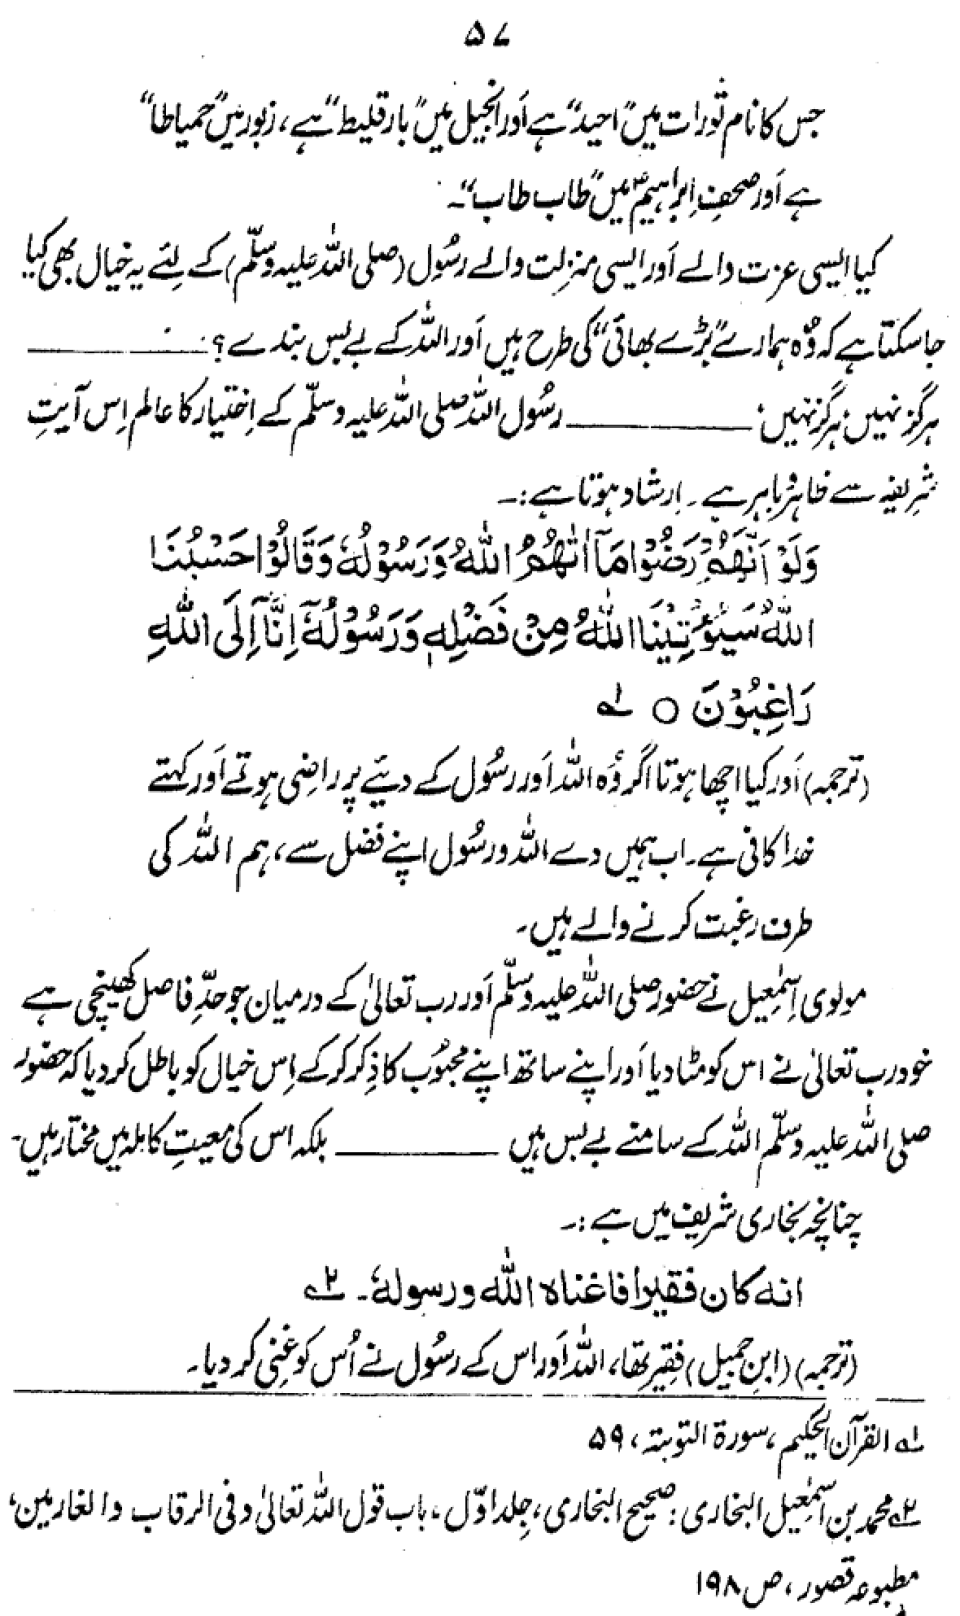 ۵۷
جس کا نام تورات میں "احید" ہے اَور انجیل میں "بارقلیط" ہے، زبور میں "حمیاطا"
ہے اَور صحفِ اِبراہیمؑ میں "طاب طاب"۔
کیا ایسی عزت والے اَور ایسی منزلت والے رسُول (صلی اللہ علیہ وسلّم) کے لئے یہ خیال بھی کیا
جا سکتا ہے کہ وُہ ہمارے "بڑے بھائی" کی طرح ہیں اَور اللہ کے بے بس بندے؟ ـــــــــــــ
ہرگز نہیں، ہرگز نہیں: ـــــــــــــ رسُول اللہ صلی اللہ علیہ وسلّم کے اِختیار کا عالم اِس آیتِ
شریفہ سے ظاہر و باہر ہے۔ اِرشاد ہوتا ہے:۔
وَلَوْ اَنَّهُمْ رَضُوْا مَآ اٰتٰهُمُ اللّٰهُ وَرَسُوْلُهٗ وَقَالُوْا حَسْبُنَا
اللّٰهُ سَيُؤْتِيْنَا اللّٰهُ مِنْ فَضْلِهٖ وَرَسُوْلُهٗٓ اِنَّآ اِلَى اللّٰهِ
رَاغِبُوْنَ ○ ۱ے
(ترجمہ) اَور کیا اچھا ہوتا اگر وُہ اللہ اَور رسُول کے دیئے پر راضی ہوتے اَور کہتے
خدا کافی ہے۔ اب ہمیں دے اللہ و رسُول اپنے فضل سے، ہم اللہ کی
طرف رغبت کرنے والے ہیں۔
مولوی اِسمٰعیل نے حضور صلی اللہ علیہ وسلّم اَور رب تعالیٰ کے درمیان جو حدِّ فاصل کھینچی ہے
خود رب تعالیٰ نے اس کو مٹا دیا اَور اپنے ساتھ اپنے محبُوب کا ذِکر کر کے اِس خیال کو باطل کر دیا کہ حضور
صلی اللہ علیہ وسلّم اللہ کے سامنے بے بس ہیں ـــــــــــــ بلکہ اس کی معیتِ کاملہ میں مختار ہیں۔
چنانچہ بخاری شریف میں ہے:۔
انه كان فقيرا فاغناه الله ورسوله۔ ۲ے
(ترجمہ) (ابنِ جمیل) فقِیر تھا، اللہ اَور اس کے رسُول نے اُس کو غنِی کر دیا۔
۱ے القرآن الحکیم، سورۃ التوبتہ، ۵۹
۲ے محمد بن اسمٰعیل البخاری: صحیح البخاری، جِلد اوّل، باب قول اللہ تعالیٰ وفی الرقاب والغارمین،
مطبوعہ قصور، ص ۱۹۸